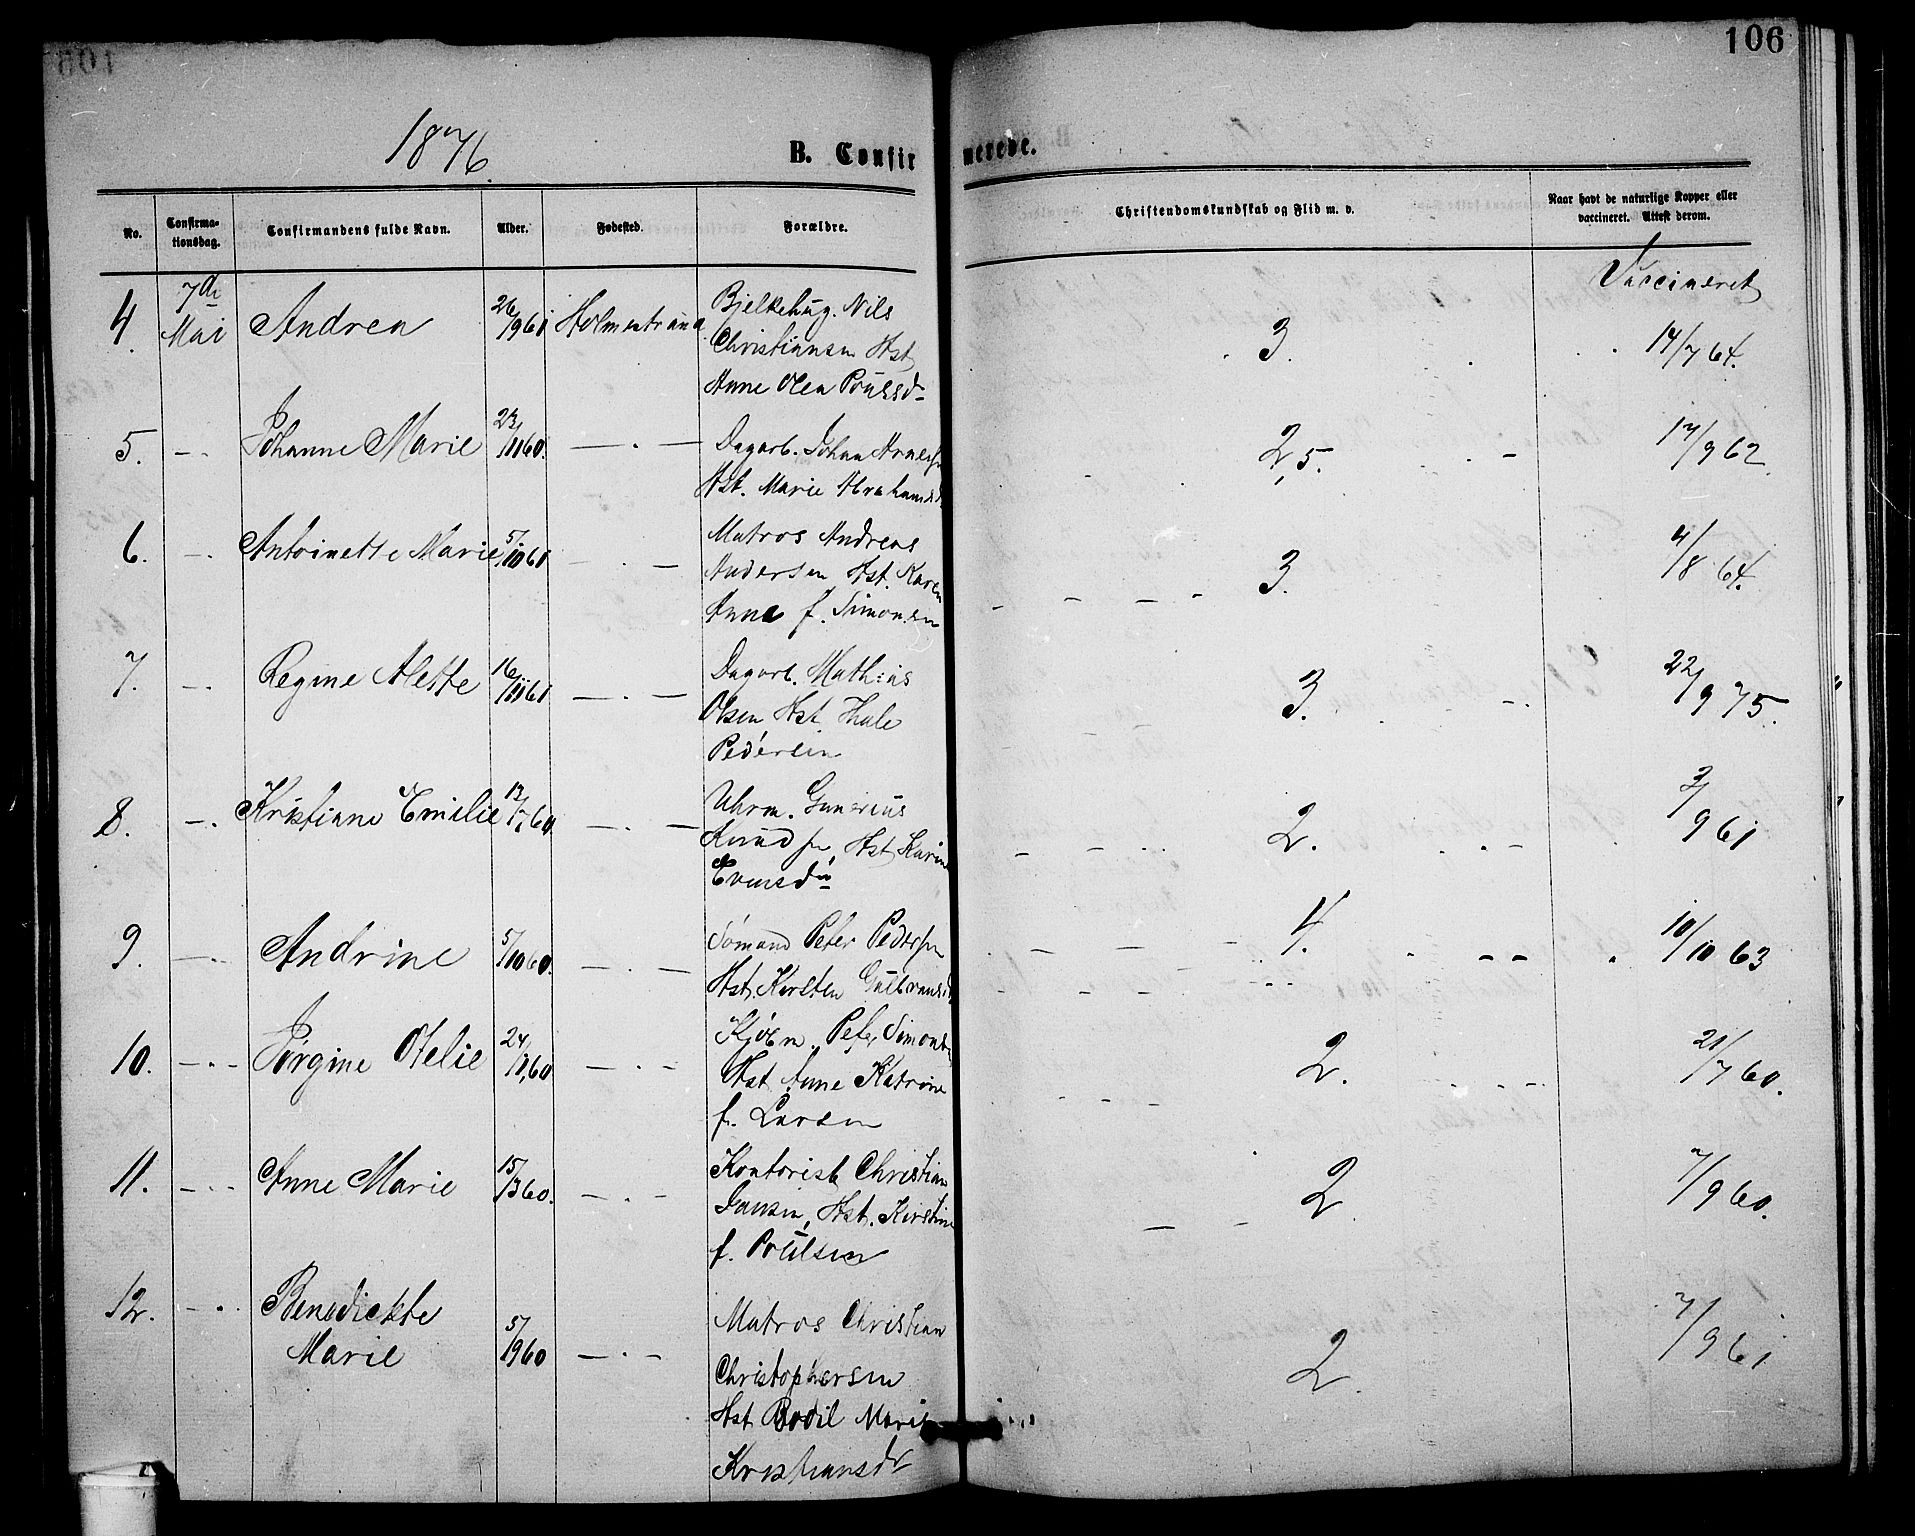 106
1876.
B. Confirmerede.
No. Confirmationsdag. Confirmandens fulde Navn. Alder. Fødested. Forældre. Christendomskundskab og Flid m. v. Naar havt de naturlige Kopper eller vaccineret. Attest derom.
Vaccineret
4. 7de Mai Andrea 26/9 61 Holmestrand
Nils
Christiansen Hst
Anne Olea Poulsdr
3. 14/7 64.
5. — Johanne Marie 23/11 60. — . —
Dagarb. Johan
Hst. Marie Abrahamsd
2,5. 17/9 62.
6. — Antoinette Marie 5/10 61 — . —
Matros Andreas
Andersen, Hst. Karen
Anne f. Simonsen
3. 4/8 64.
7. — Regine Alette 16/11 61 — . —
Dagarb. Mathias
Olsen Hst Thale
Pedersen
3. 22/9 75.
8. — Kristiane Emilie 13/7 60. — . —
Uhrm. Gunerius
Knudsen, Hst Karine
Evensdtr
2. 3/9 61
9. — Andrine 5/10 60. — . —
Sømand Peter Pedersen
Hst. Kirsten Gulbrandsd
4. 10/10 63
10. — Jørgine Otelie 24/1 60 — . —
Kjøbm. Peter Simonsen
Hst Anne Katrine
f. Larsen
2. 21/7 60.
11. — Anne Marie 15/3 60. — . —
Kontorist Christian
Jansen, Hst. Kirstine
f. Poulsen
2. 7/9 60.
12. — Benedickte
Marie 5/9 60 — . —
Matros Christian
Christophersen
Hst Bodil Marie
Kristiansdr
2. 7/9 61